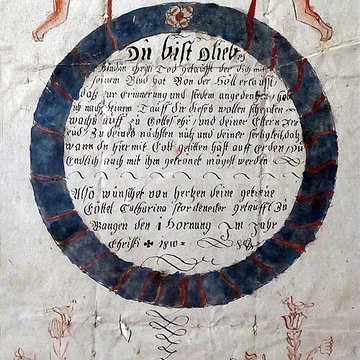 Du bist O lieb
Kindin Christi Tod getaufft der dich mit
seinem Blut hat Von der Höll erkaufft
daß zur Erinnerung und stetem angedencken hab
ich nach deinem Tauff dir dieses wollen schencken
wachß auff zu Gottes ehr und deiner Eltern
Zu deines nächsten nutz und deiner seeligkeit daß
wann du hier mit Gott gelitten hast auff erden du
Endlich auch mit ihm gekrönet mögest werden
Also wünschet von hertzen deine getreue
Göttel Catharina getaufft Zu
Wangen den 1 Hornung Im Jahr
Christi 1810